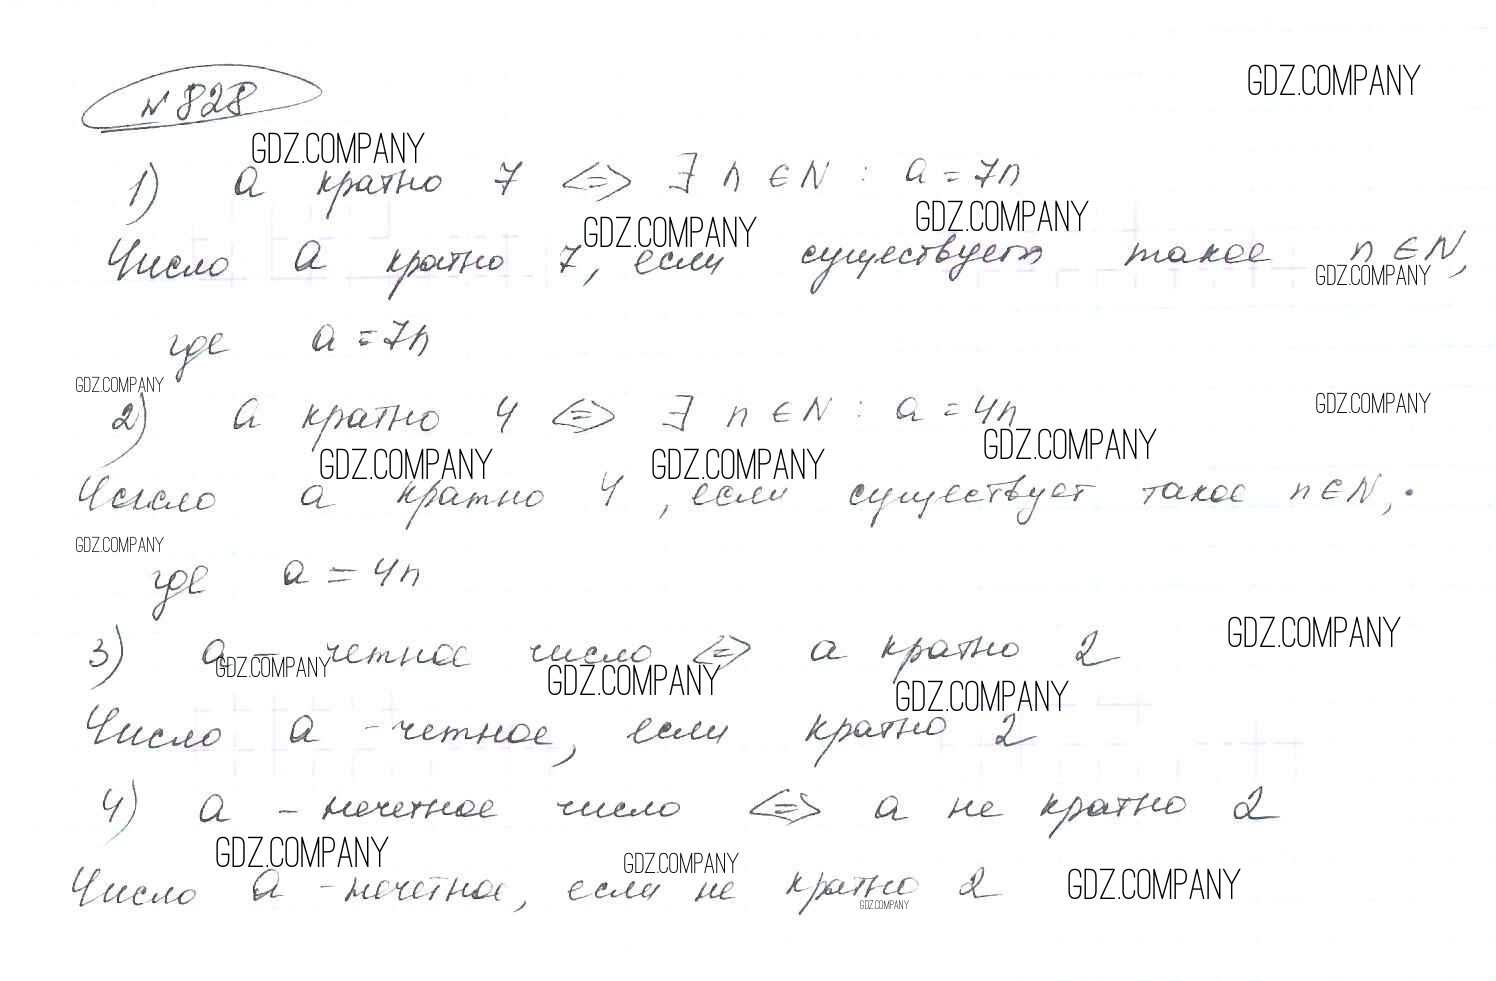 GDZ.COMPANY
№ 828
GDZ.COMPANY
1) a кратно 7 <=> ∃ n ∈ N : a = 7n
GDZ.COMPANY GDZ.COMPANY
Число a кратно 7, если существует такое n ∈ N,
GDZ.COMPANY
где a = 7n
GDZ.COMPANY GDZ.COMPANY
2) a кратно 4 <=> ∃ n ∈ N : a = 4n
GDZ.COMPANY GDZ.COMPANY GDZ.COMPANY
Число a кратно 4, если существует такое n ∈ N,
GDZ.COMPANY
где a = 4n
GDZ.COMPANY
3) a - четное число <=> a кратно 2
GDZ.COMPANY GDZ.COMPANY GDZ.COMPANY
Число a - четное, если кратно 2
4) a - нечетное число <=> a не кратно 2
GDZ.COMPANY GDZ.COMPANY GDZ.COMPANY
Число a - нечетное, если не кратно 2
GDZ.COMPANY